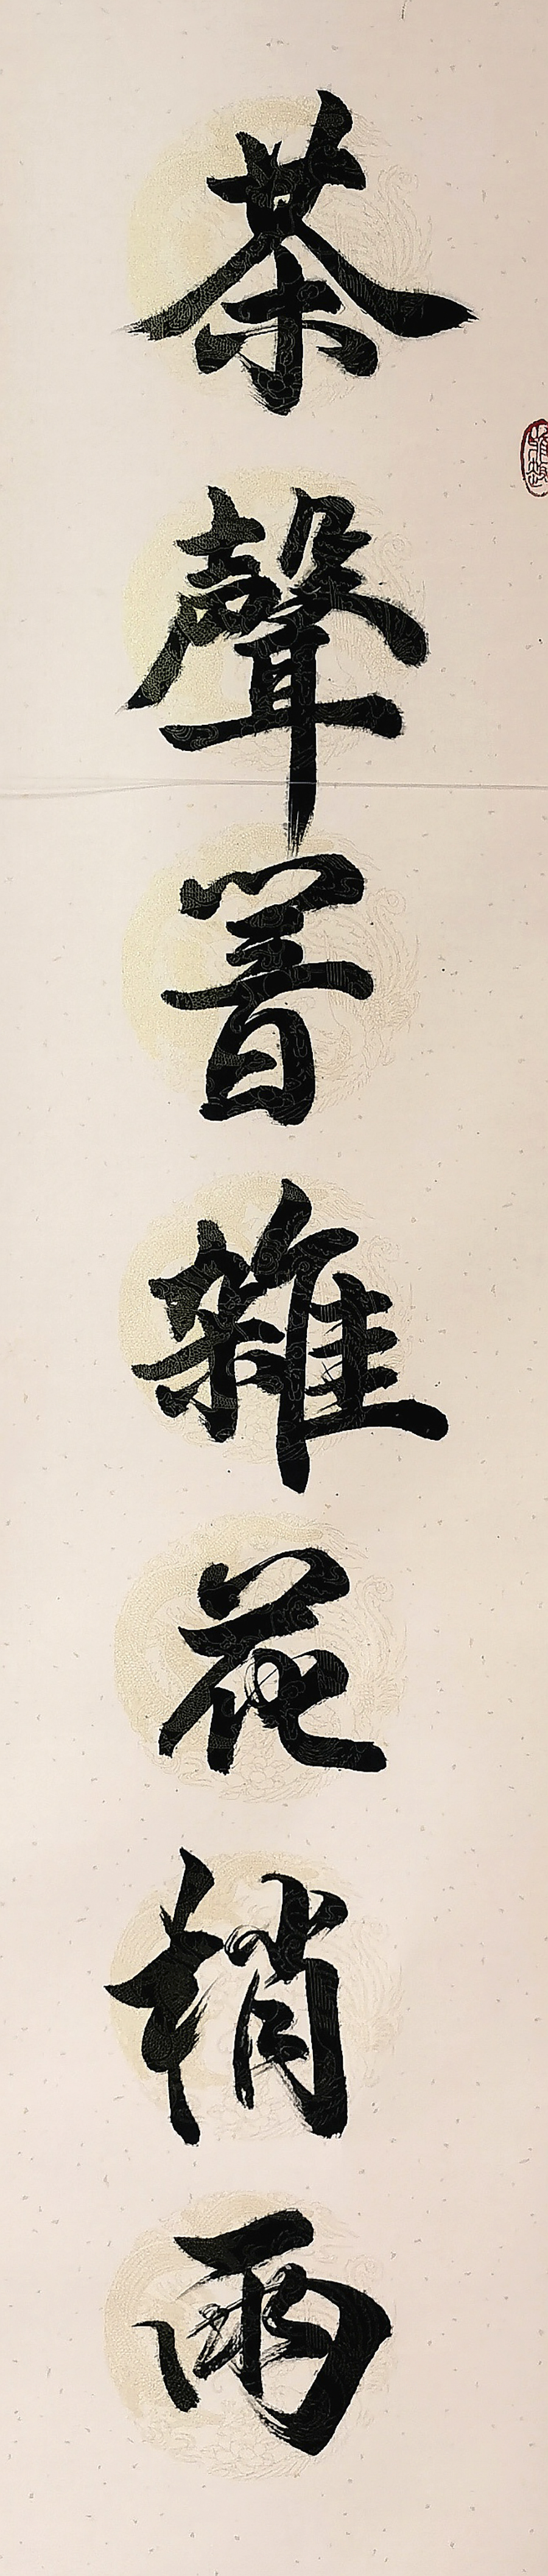 茶聲雜花梢雨